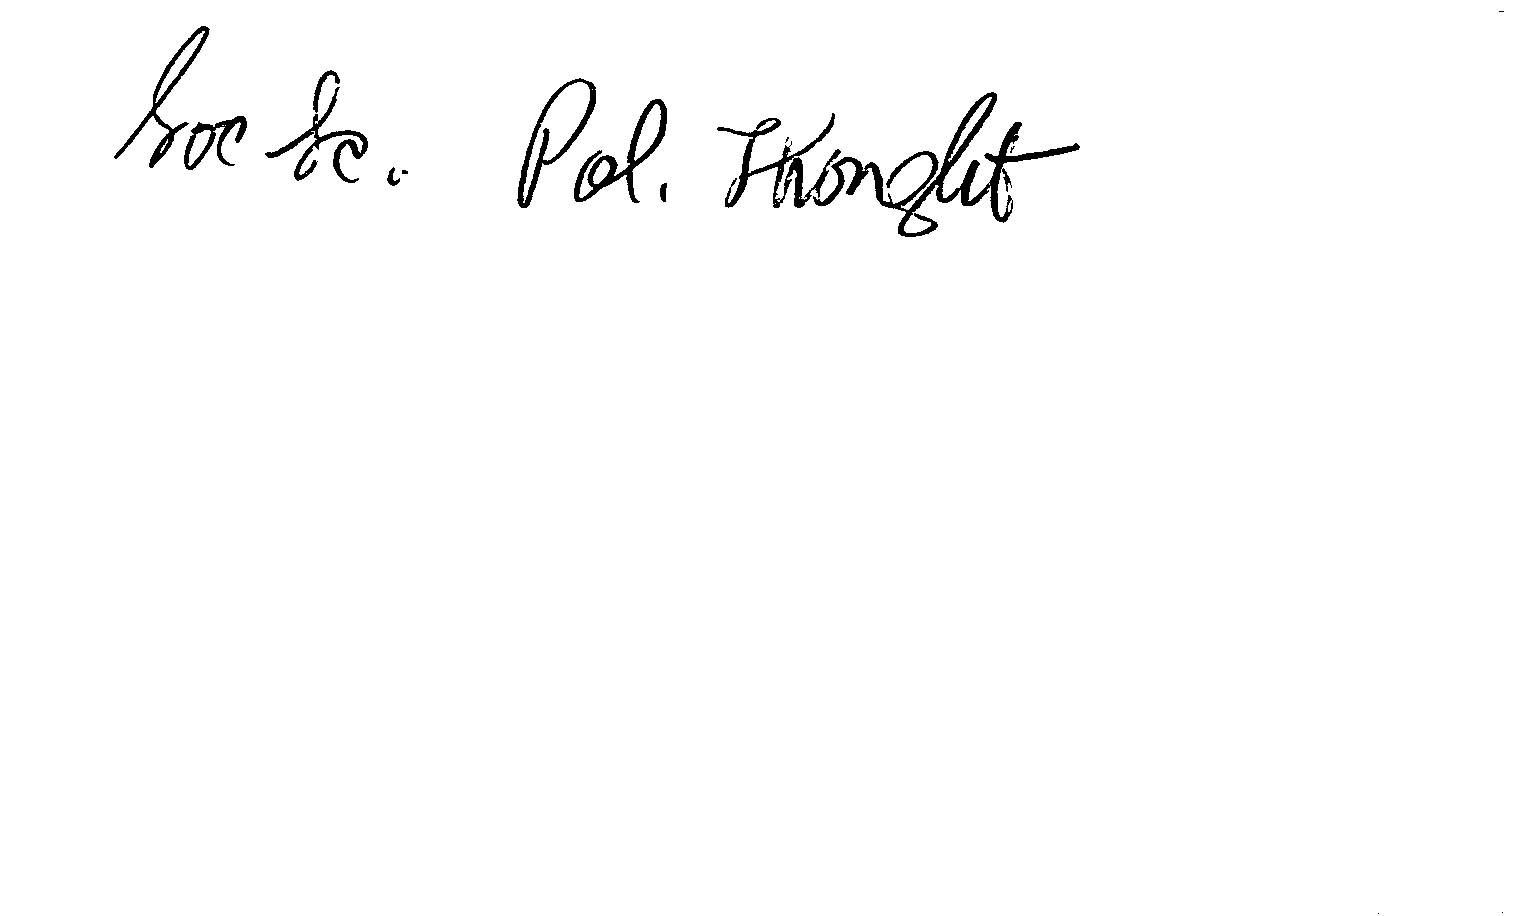 Soc Sc. Pol. Thought